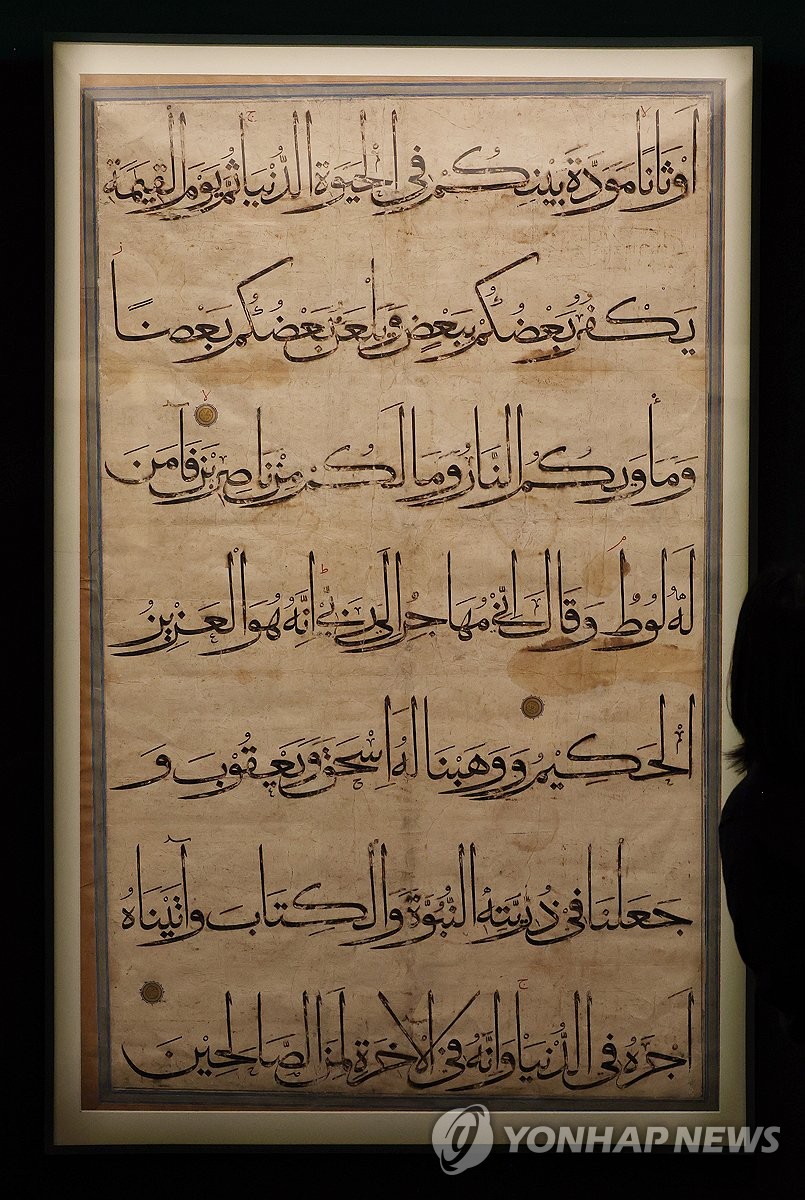 اَوْثَانًا مَوَدَّةَ بَيْنِكُمْ فِى الْحَيٰوةِ الدُّنْيَا ثُمَّ يَوْمَ الْقِيٰمَةِ
يَكْفُرُ بَعْضُكُمْ بِبَعْضٍ وَيَلْعَنُ بَعْضُكُمْ بَعْضًا
وَمَأْوٰىكُمُ النَّارُ وَمَا لَكُمْ مِنْ نَاصِرِينَ فَآمَنَ
لَهُ لُوطٌ وَقَالَ اِنِّى مُهَاجِرٌ اِلٰى رَبِّى اِنَّهُ هُوَ الْعَزِيزُ
الْحَكِيمُ وَوَهَبْنَا لَهُ اِسْحٰقَ وَيَعْقُوبَ وَ
جَعَلْنَا فِى ذُرِّيَّتِهِ النُّبُوَّةَ وَالْكِتَابَ وَآتَيْنَاهُ
اَجْرَهُ فِى الدُّنْيَا وَاِنَّهُ فِى الْاٰخِرَةِ لَمِنَ الصَّالِحِينَ
YONHAP NEWS